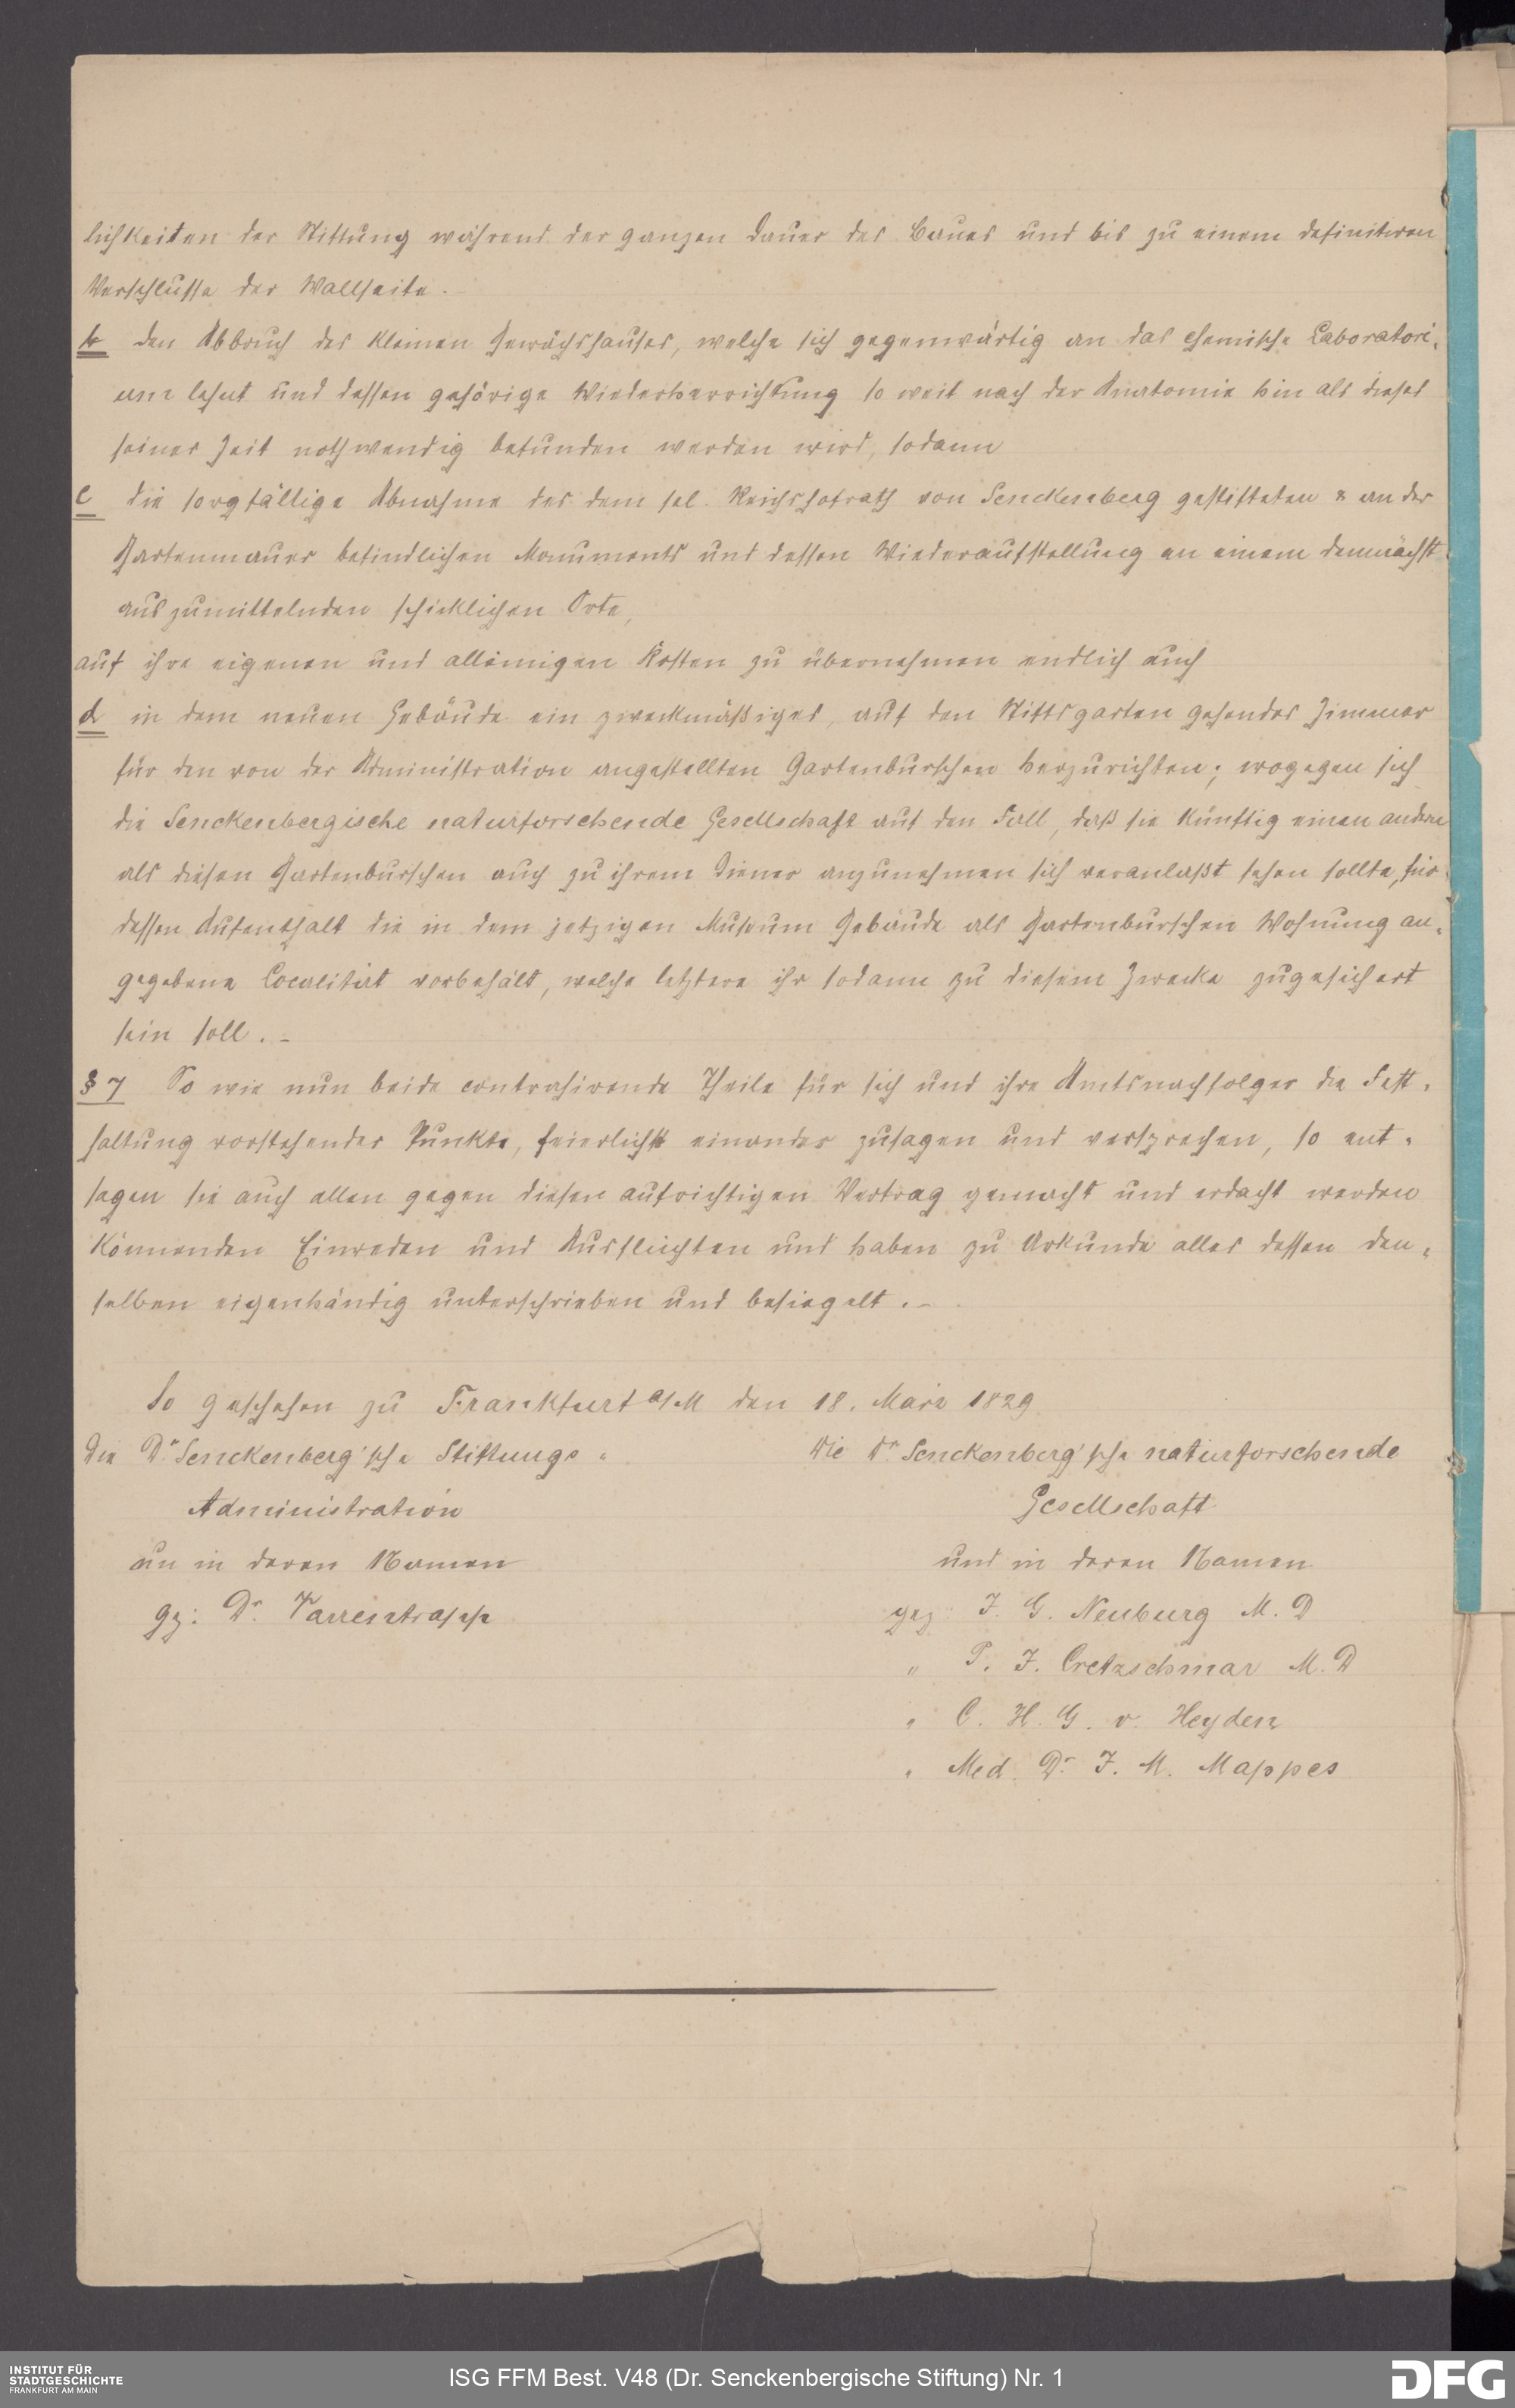 lichkeiten der Stiftung während der ganzen Dauer des Baues und bis zu einem definitiven
Verschlusse der Wallseite.
b den Abbruch des kleinen Gewächshauses, welche sich gegenwärtig an das chemische Laboratori-
um lehnt und dessen gehörige Wiederherrichtung so weit nach der Anatomie hin als dieses
seiner Zeit nothwendig befunden werden wird, sodann
c die sorgfältige Abnahme des dem sel. Reichshofrath von Senckenberg gestifteten & an der
Gartenmauer befindlichen Monuments und dessen Wiederaufstellung an einem demnächst
auszumittelnden schicklichen Orte,
auf ihre eigenen und alleinigen Kosten zu übernehmen endlich auch
d in dem neuen Gebäude ein zweckmäßiges, auf den Stiftsgarten gehendes Zimmer
für den von der Administration angestellten Gartenburschen herzurichten; wogegen sich
die Senckenbergische naturforschende Gesellschaft auf den Fall, daß sie künftig einen andern
als diesen Gartenburschen auch zu ihrem Diener anzunehmen sich veranlaßt sehen sollte, für
dessen Aufenthalt die in dem jetzigen Museum Gebäude als Gartenburschen Wohnung an-
gegebene Localität vorbehält, welche letztere ihr sodann zu diesem Zwecke zugesichert
sein soll. -
§ 7 So wie nun beide contrahirende Theile für sich und ihre Amtsnachfolger die Fest-
haltung vorstehender Punkte, feierlichst einander zusagen und versprechen, so ent-
sagen sie auch allen gegen diesen aufrichtigen Vertrag gemacht und erdacht werden
könnenden Einreden und Ausflüchten und haben zu Urkunde alles dessen den-
selben eigenhändig unterschrieben und besiegelt. -
So geschehen zu Frankfurt a/M den 18. März 1829
Die Dr. Senckenberg'sche Stiftungs-
Administration
un in deren Namen
gz: Dr. Varrentrapp
Die Dr. Senckenberg'sche naturforschende
Gesellschaft
und in deren Namen
gez: J. G. Neuburg M. D
" P. J. Cretzschmar M. D
" C. H. G. v. Heyden
" Med. Dr. J. M. Mappes
INSTITUT FÜR
STADTGESCHICHTE
FRANKFURT AM MAIN
ISG FFM Best. V48 (Dr. Senckenbergische Stiftung) Nr. 1
DFG